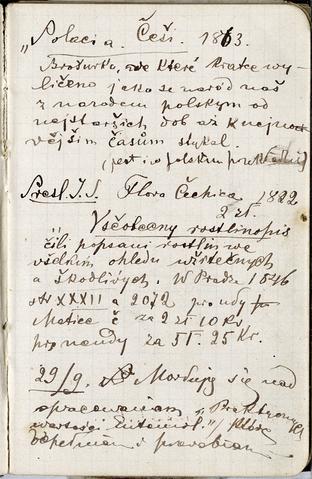 „Polaci a Češi. 1863.
Brožurka, ve které krátce vy-
líčeno jako se národ náš
z národem polským od
nejstarších dob až k nejnov
ějším časům stýkal.
(jest i w polském překladu)
Presl. J. S. Flora Čechica 1822
2 zł.
„ Všeobecny rostlinopis
čili popsani rostlin we
všelikém ohledu užitečnych
a škodlivých. W Praze 1846
str XXXII a 2072 pro udy
Matice č za 2 zł 10 Kr
pro neudy za 5 zł. 25 Kr.
29/9. Morduję się nad
opracowaniem „Praktycznych